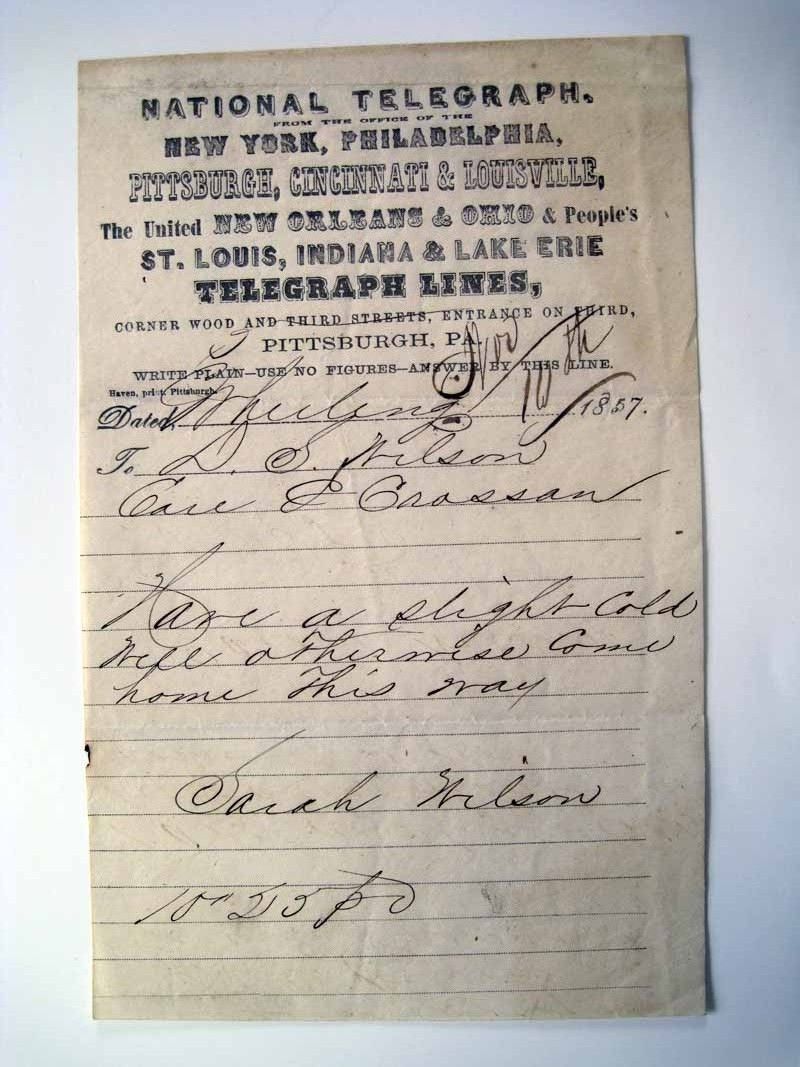 NATIONAL TELEGRAPH.
FROM THE OFFICE OF THE
NEW YORK, PHILADELPHIA,
PITTSBURGH, CINCINNATI & LOUISVILLE,
The United NEW ORLEANS & OHIO & People's
ST. LOUIS, INDIANA & LAKE ERIE
TELEGRAPH LINES,
CORNER WOOD AND THIRD STREETS, ENTRANCE ON THIRD,
PITTSBURGH, PA.
WRITE PLAIN—USE NO FIGURES—ANSWER BY THIS LINE.
Haven, print. Pittsburgh.
Dated, Wheeling Nov 10th 1857.
To D. S. Wilson
Care J Crossan
Have a slight cold
Well otherwise Come
home this way
Sarah Wilson
10 " 25 pd